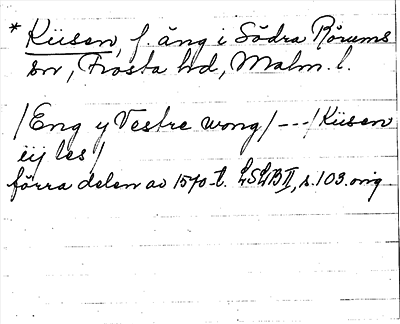 * Küsen, f. äng i Södra Rörums
sn, Frosta hd, Malm. l.
/Eng y Vestre wong/ --- / Küsen
iij les/
förra delen av 1570-t. LSLB II, s. 103. orig